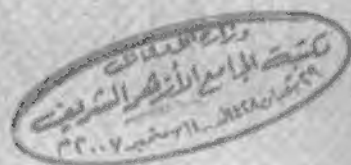 وزارة
مكتبة الجامع الأزهر الشريف
٢٩ شعبان ١٤٢٨هـ ١١ سبتمبر ٢٠٠٧م